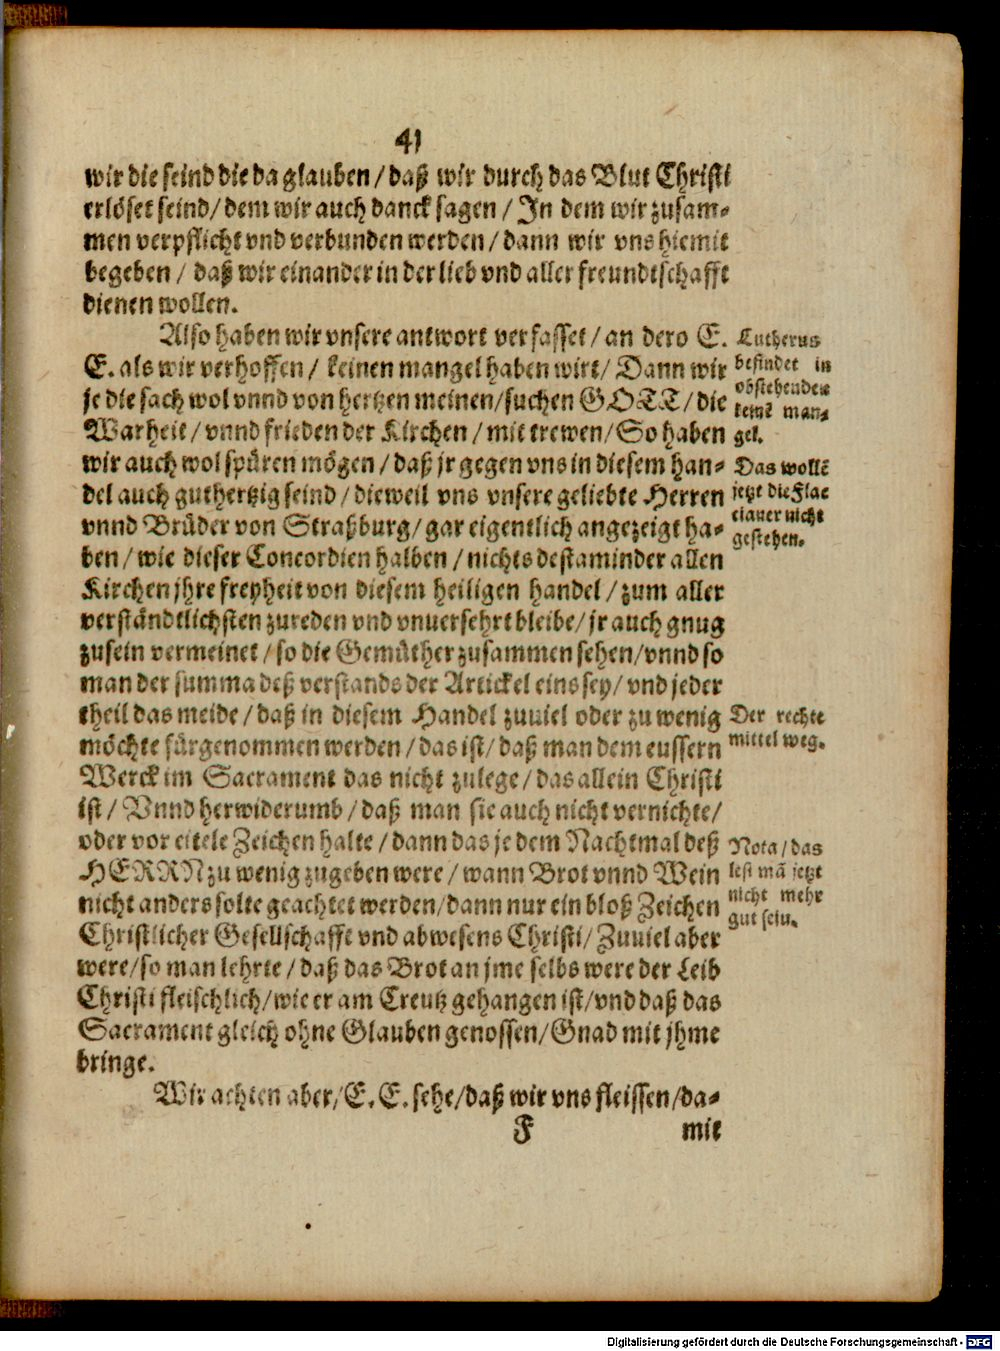 41
wir die seind die da glauben / daß wir durch das Blut Christi
erlöset seind / dem wir auch danck sagen / In dem wir zusam-
men verpflicht vnd verbunden werden / dann wir vns hiemit
begeben / daß wir einander in der lieb vnd aller freundtschafft
dienen wollen.
Also haben wir vnsere antwort verfasset / an dero E.
E. als wir verhoffen / keinen mangel haben wirt / Dann wir
je die sach wol vnnd von hertzen meinen / suchen GOTT / die
Warheit / vnnd frieden der Kirchen / mit trewen / So haben
wir auch wol spüren mögen / daß jr gegen vns in diesem han-
del auch guthertzig seind / dieweil vns vnsere geliebte Herren
vnnd Brüder von Straßburg / gar eigentlich angezeigt ha-
ben / wie dieser Concordien halben / nichts destaminder allen
Kirchen jhre freyheit von diesem heiligen handel / zum aller
verständtlichsten zureden vnd vnuersehrt bleibe / jr auch gnug
zusein vermeinet / so die Gemüther zusammen sehen / vnnd so
man der summa deß verstands der Artickel eins sey / vnd jeder
theil das meide / daß in diesem Handel zuuiel oder zu wenig
möchte fürgenommen werden / das ist / daß man dem eussern
Werck im Sacrament das nicht zulege / das allein Christi
ist / Vnnd herwiderumb / daß man sie auch nicht vernichte /
oder vor eitele Zeichen halte / dann das je dem Nachtmal deß
HERRN zu wenig zugeben were / wann Brot vnnd Wein
nicht anders solte geachtet werden / dann nur ein bloß Zeichen
Christlicher Gesellschafft vnd abwesens Christi / Zuuiel aber
were / so man lehrte / daß das Brot an jme selbs were der Leib
Christi fleischlich / wie er am Creutz gehangen ist / vnd daß das
Sacrament gleich ohne Glauben genossen / Gnad mit jhme
bringe.
Wir achten aber / E. E. sehe / daß wir vns fleissen / da-
F mit
Lutherus
befindet in
obstehenden
keinē man-
gel.
Das wollē
jetzt die Flac
cianer nicht
gestehen.
Der rechte
mittel weg.
Nota / das
lest mā jetzt
nicht mehr
gut sein.
Digitalisierung gefördert durch die Deutsche Forschungsgemeinschaft - DFG